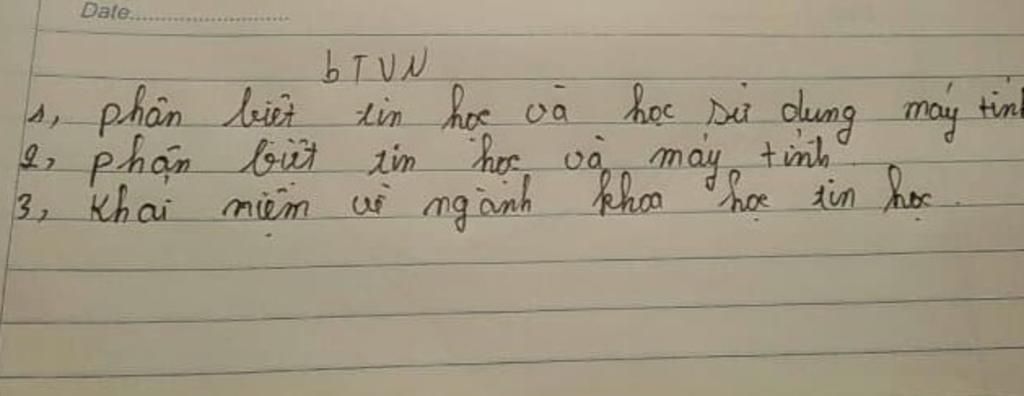 Date..........................
bTVN
1, phân biệt tin học và học sử dụng máy tính
2, phận biệt tin học và máy tính
3, Khai niệm về ngành khoa học tin học.